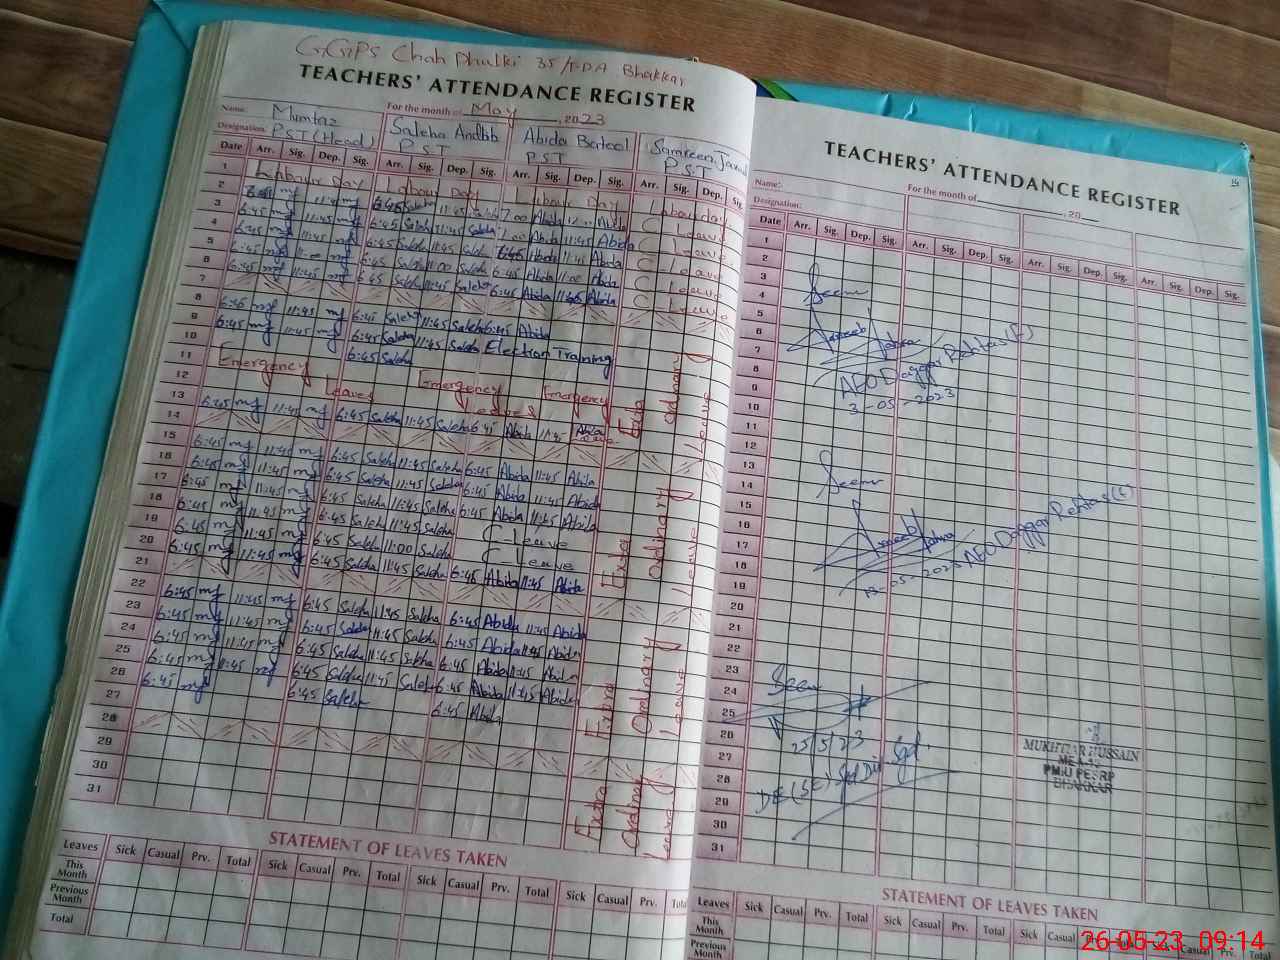 GGPS Chah Phulki 35/TDA Bhakkar
TEACHERS' ATTENDANCE REGISTER
Name: Mumtaz For the month of May, 2023
Designation: P.S.T (Head) Saleha Andlib P.S.T Abida Batool P.S.T Samreen P.S.T
Date Arr. Sig. Dep. Sig. Arr. Sig. Dep. Sig. Arr. Sig. Dep. Sig. Arr. Sig. Dep. Sig.
1 Labour Day Labour Day Labour Day Labour day
2 11:45 6:45 Saleha 11:45 Saleha 7:00 Abida C Leave
3 6:45 11:45 6:45 Saleha 11:45 Saleha 7:00 Abida 11:45 Abida C Leave
4 6:45 11:45 6:45 Saleha 11:45 Saleha 6:45 Abida 11:45 Abida C Leave
5 6:45 11:00 6:45 Saleha 11:00 Saleha 6:45 Abida 11:00 Abida C Leave
6 6:45 11:45 6:45 Saleha 11:45 Saleha 6:45 Abida 11:45 Abida C Leave
7
8 6:45 11:45 6:45 Saleha 11:45 Saleha 6:45 Abida
9 6:45 11:45 6:45 Saleha 11:45 Saleha Election Training
10 6:45 Saleha
11 Emergency Emergency Emergency
12 Leaves Leaves Leave
13 6:45 11:45 6:45 Saleha 11:45 Saleha 6:45 Abida 11:45 Abida
14
15 6:45 11:45 6:45 Saleha 11:45 Saleha 6:45 Abida 11:45 Abida
16 6:45 11:45 6:45 Saleha 11:45 Saleha 6:45 Abida 11:45 Abida
17 6:45 11:45 6:45 Saleha 11:45 Saleha 6:45 Abida 11:45 Abida
18 6:45 11:45 6:45 Saleha 11:45 Saleha C-leave
19 6:45 11:45 6:45 Saleha 11:00 Saleha C leave
20 6:45 11:45 6:45 Saleha 11:45 Saleha 6:45 Abida 11:45 Abida
21
22 6:45 11:45 6:45 Saleha 11:45 Saleha 6:45 Abida 11:45 Abida
23 6:45 11:45 6:45 Saleha 11:45 Saleha 6:45 Abida 11:45 Abida
24 6:45 11:45 6:45 Saleha 11:45 Saleha 6:45 Abida 11:45 Abida
25 6:45 11:45 6:45 Saleha 11:45 Saleha 6:45 Abida 11:45 Abida
26 6:45 6:45 Saleha 6:45 Abida
27
28
29
30
31
Extra Ordinary Leave
Extra Ordinary Leave
Extra Ordinary Leave
Extra Ordinary Leave
STATEMENT OF LEAVES TAKEN
Leaves Sick Casual Prv. Total Sick Casual Prv. Total Sick Casual Prv. Total Sick Casual Prv. Total
This Month
Previous Month
Total
14
TEACHERS' ATTENDANCE REGISTER
Name: For the month of , 20
Designation:
Date Arr. Sig. Dep. Sig. Arr. Sig. Dep. Sig. Arr. Sig. Dep. Sig. Arr. Sig. Dep. Sig.
1
2
3
4 Seen
5
6
7
8 AEO Daggar Rehtas (F)
9 3-05-2023
10
11
12
13
14 Seen
15
16
17 AEO Daggar Rehtas (F)
18 13-05-2023
19
20
21
22
23
24 Seen
25
26 25/5/23
27
28
29
30
31
MUKHTIAR HUSSAIN
PMIU PESRP
BHAKKAR
STATEMENT OF LEAVES TAKEN
Leaves Sick Casual Prv. Total Sick Casual Prv. Total Sick Casual Prv. Total Sick Casual Prv. Total
This Month
Previous Month
26-05-23 09:14